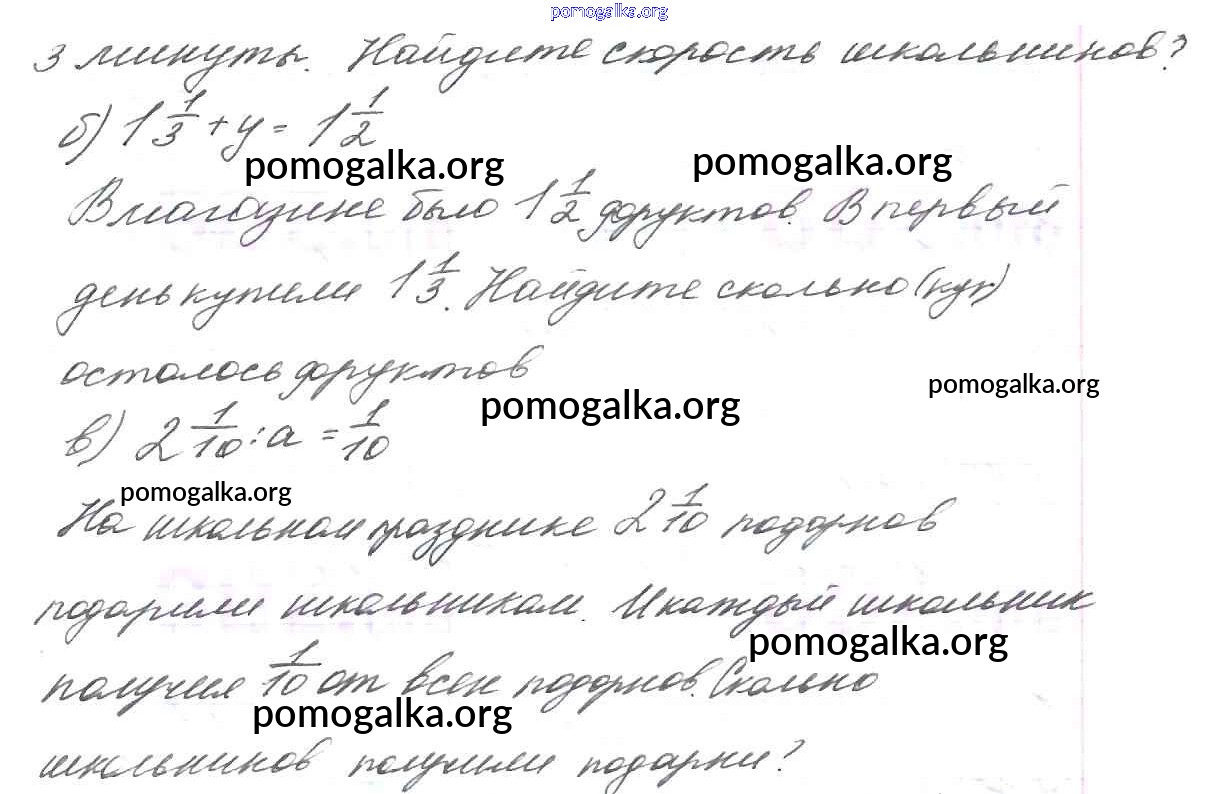 pomogalka.org
3 минуты. Найдите скорость школьников?
б) 1 1/3 + y = 1 1/2
pomogalka.org pomogalka.org
В магазине было 1 1/2 фруктов. В первый
день купили 1 1/3. Найдите сколько (кук)
осталось фруктов
pomogalka.org pomogalka.org
в) 2 1/10 : a = 1/10
pomogalka.org
На школьном празднике 2 1/10 подарков
подарили школьникам. И каждый школьник
pomogalka.org
получил 1/10 от всех подарков. Сколько
pomogalka.org
школьников получили подарки?